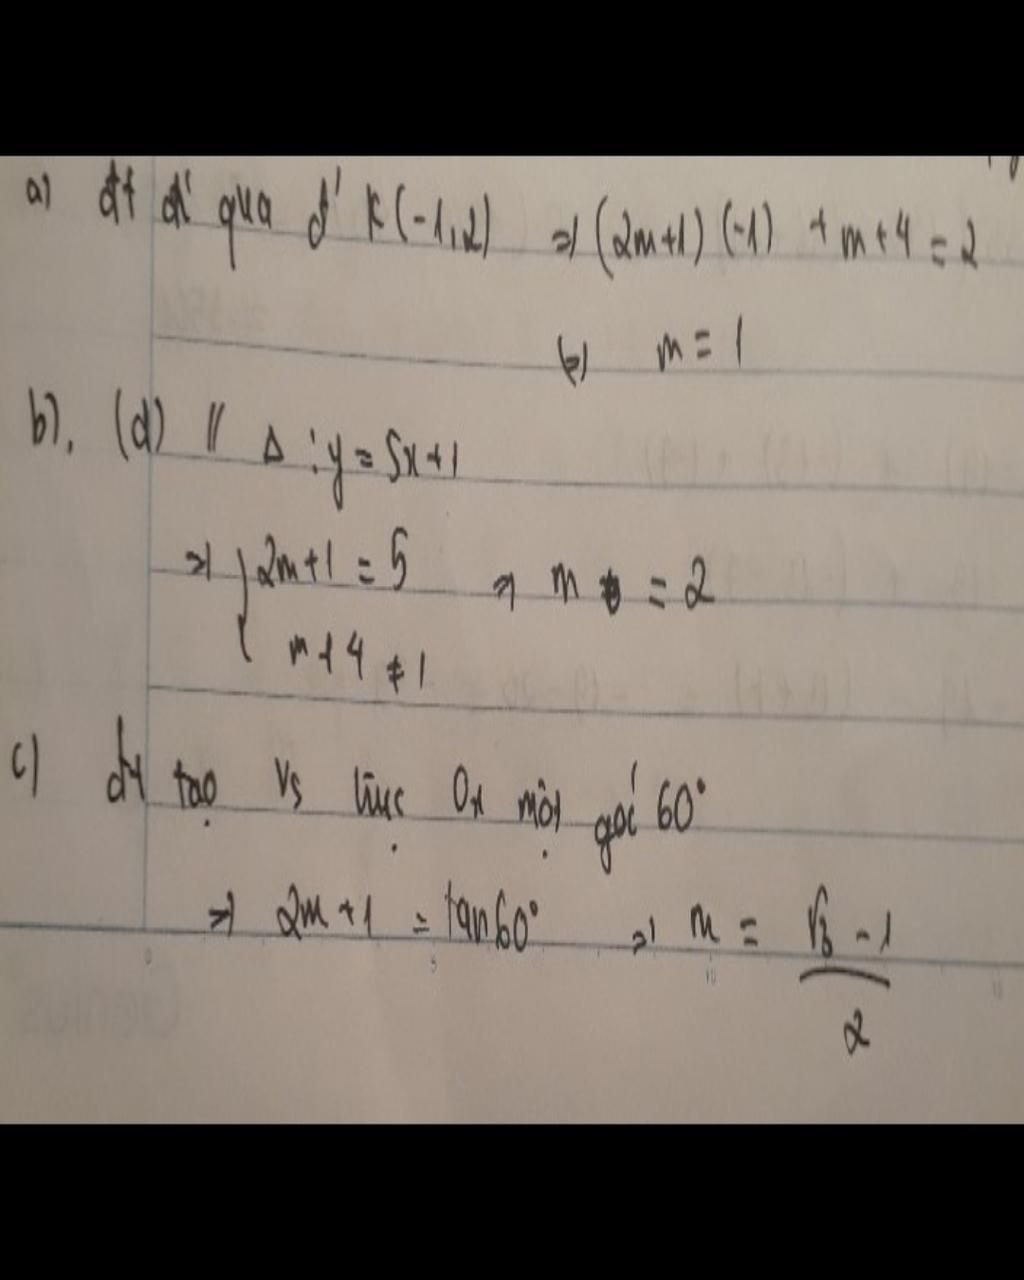 a) đt đi qua đ' K(-1,2) => (2m+1)(-1) + m+4 = 2
(=) m = 1
b). (d) // Δ : y = 5x+1
=> { 2m+1 = 5 => m = 2
m+4 ≠ 1
c) đt tạo vs trục Ox một góc 60°
=> 2m+1 = tan60° => m = √3 - 1
2